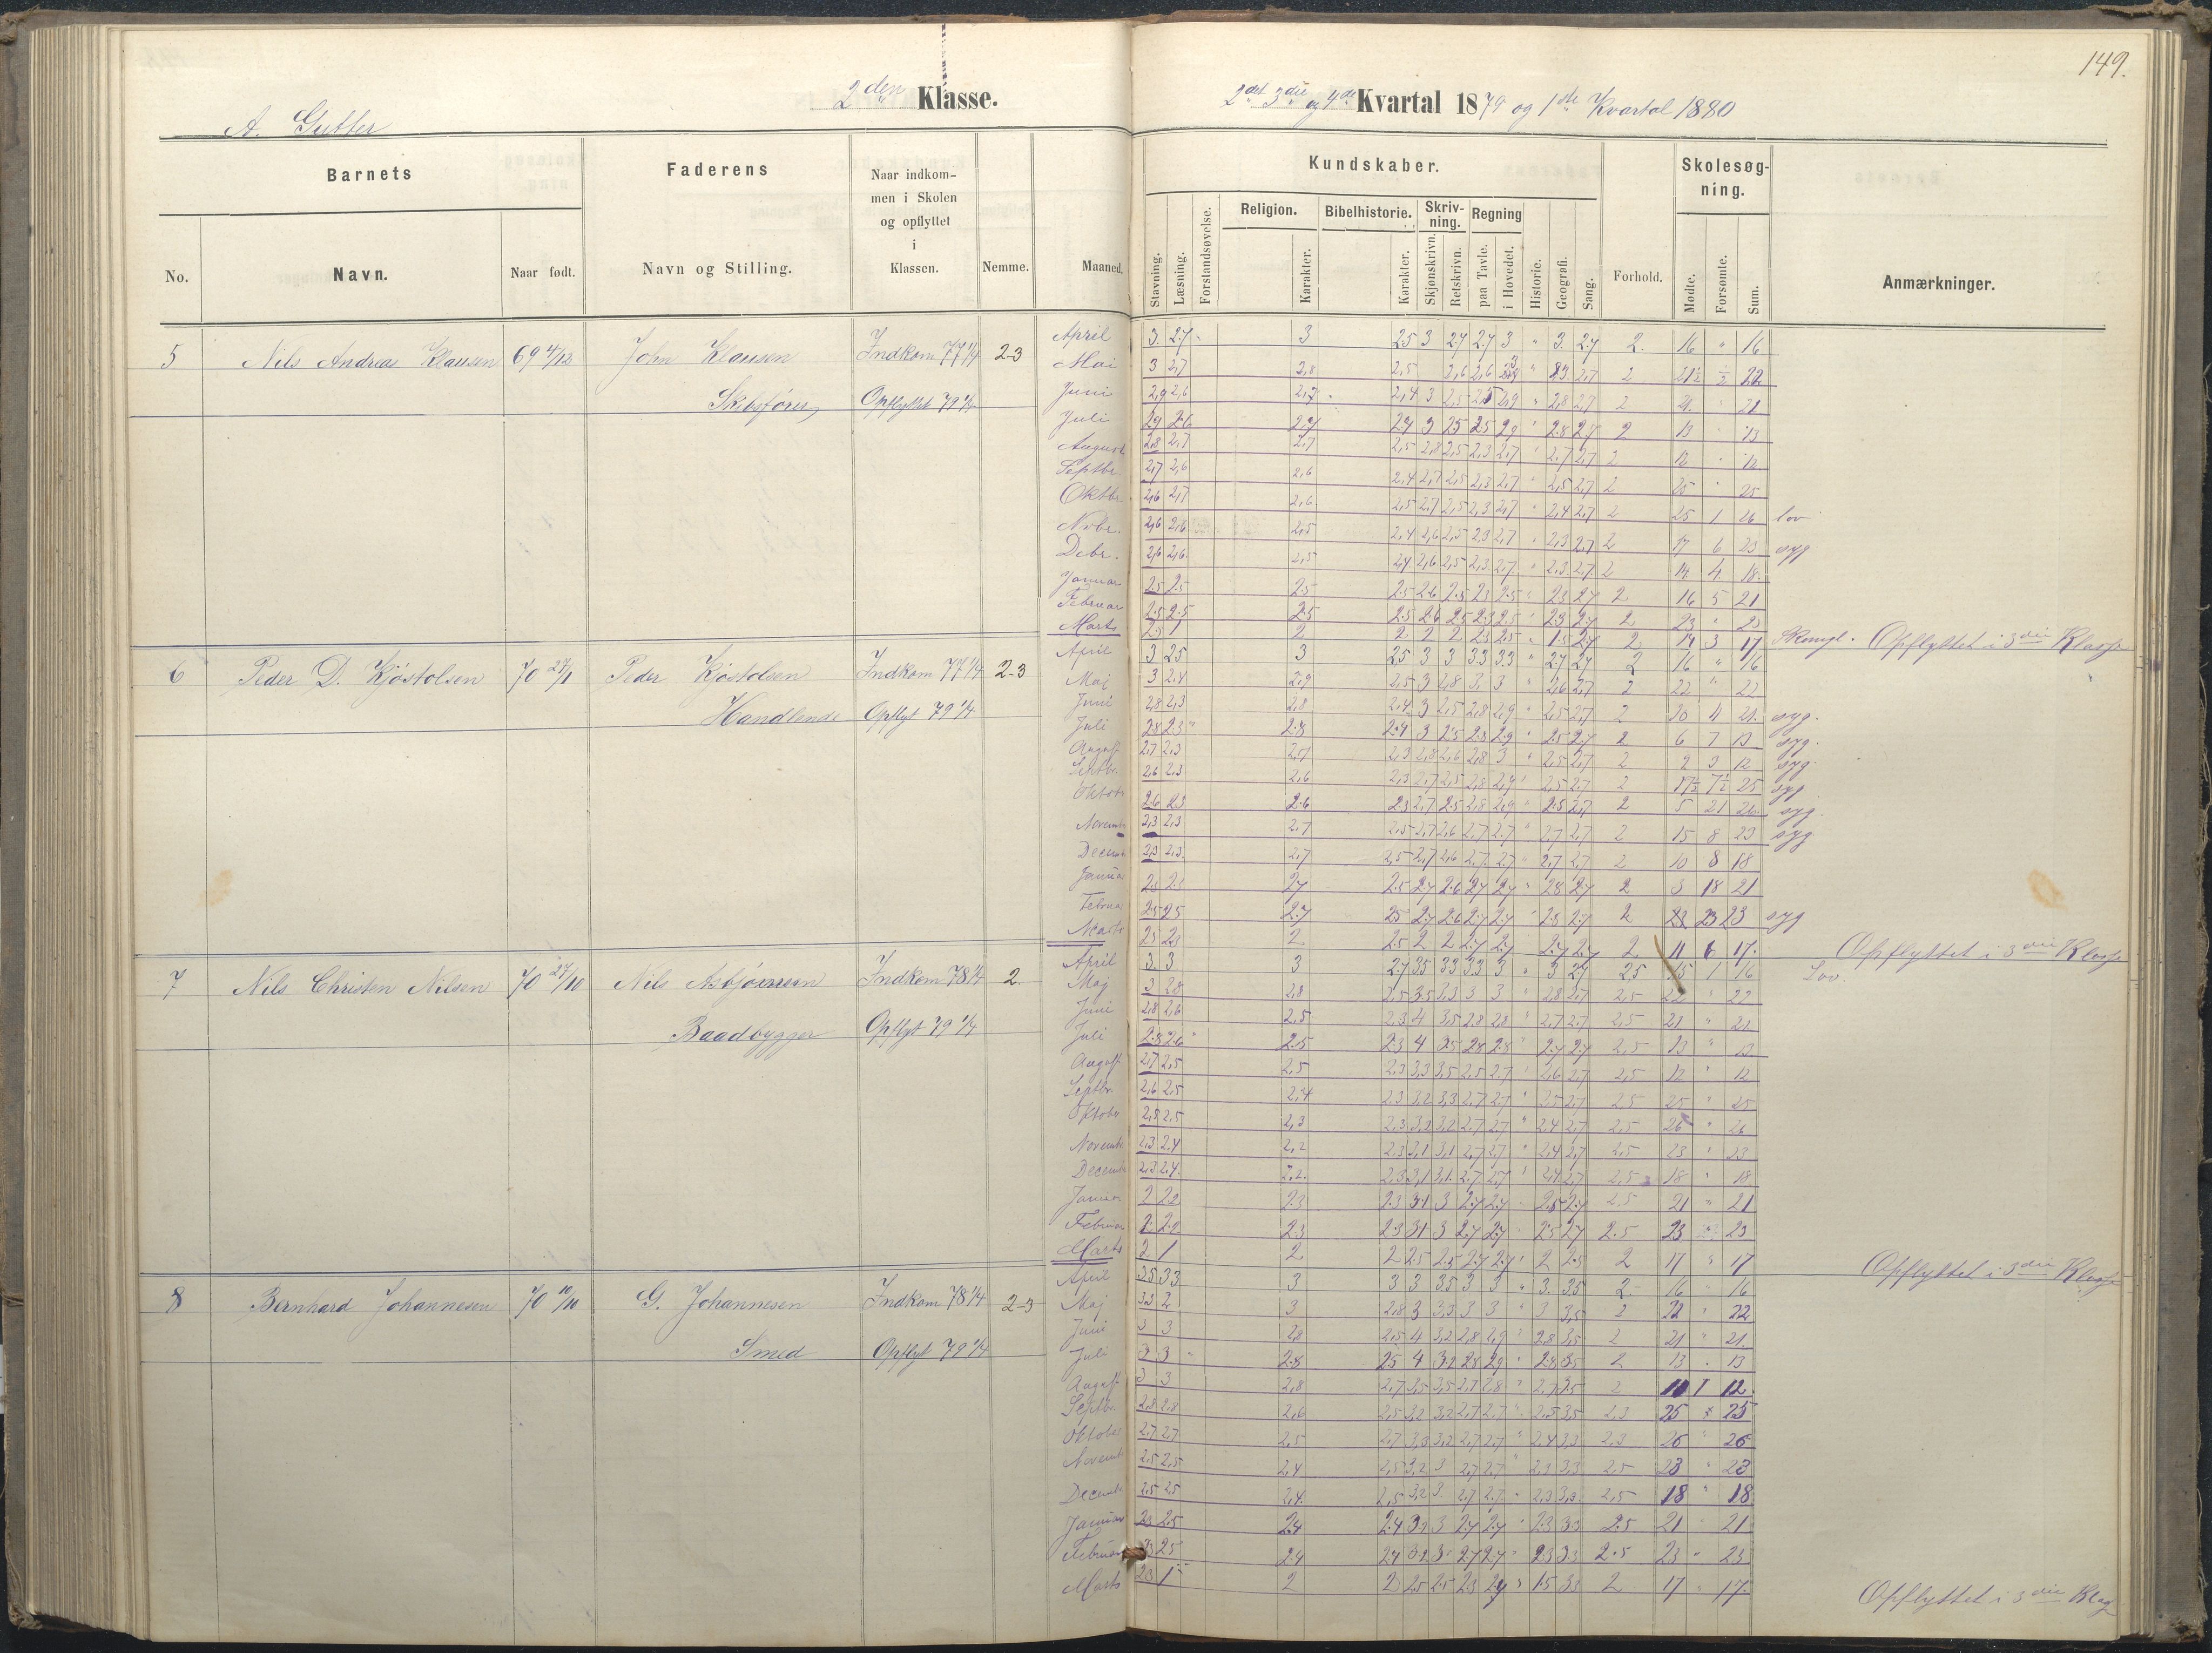 149.
2den Klasse.
2det 3die og 4de Kvartal 1879 og 1ste Kvartal 1880
A. Gutter
Barnets
Faderens
Naar indkommen i Skolen og opflyttet i Klassen.
Nemme.
Maaned.
Kundskaber.
Skolesøgning.
Anmærkninger.
No.
Navn.
Naar født.
Navn og Stilling.
Stavning.
Læsning.
Forstandsøvelse.
Religion.
Karakter.
Bibelhistorie.
Karakter.
Skrivning.
Skjønskrivn.
Retskrivn.
Regning
paa Tavle.
i Hovedet.
Historie.
Geografi.
Sang.
Forhold.
Mødte.
Forsømte.
Sum.
5 Nils Andreas Klausen 69 4/12 John Klausen Indkom 77 1/4 2-3
Skibsfører Opflyttet 79 1/4
April 3. 2.7 " 3 2.5 3 2.7 2.7 3 " 3. 2.7 2. 16 " 16
Mai 3 2,7 2,8 2,5 2,6 2,6 2,7 2 21½ ½ 22
Juni 2,9 2,6 2,7 2,4 3 2,5 2,5 2,9 " 2,8 2,7 2 21 " 21
Juli 2.9 2.6 2.7 2.4 3 2.5 2.5 2.9 " 2.8 2.7 2 13 " 13
August 2,8 2,7 2,7 2,5 2,8 2,5 2,3 2,7 " 2,7 2,7 2 12 " 12
Septbr. 2,7 2,6 2,6 2,4 2,7 2,5 2,3 2,7 " 2,5 2,7 2 25 " 25
Oktbr. 2,6 2,7 2,6 2,5 2,7 2,5 2,3 2,7 " 2,4 2,7 2 25 1 26 lov
Nvbr. 2,6 2,6 2,5 2,4 2,6 2,5 2,3 2,7 " 2,3 2,7 2 17 6 23 syg
Debr. 2,6 2,6 2,5 2,4 2,6 2,5 2,3 2,7 " 2,3 2,7 2 14 4 18.
Januar 2.5 2.5 2.5 2.5 2.6 2.5 2.3 2.5 " 2.3 2.7 2 16 5 21
Februar 2.5 2.5 2.5 2.5 2.6 2.5 2.3 2.5 " 2.3 2.7 2 23 " 23
Marts 2.5 1 2 2. 2 2 2.3 2.5 " 1.5 2.7 2 14 3 17 Opflyttet i 3die Klasse
6 Peder D. Kjøstolsen 70 27/1 Peder Kjøstolsen Indkom 77 1/4 2-3
Handlende Opflyt 79 1/4
April 3 2.5 3 2.5 3 3 3.3 3.3 " 2.7 2.7 2 16 " 16
Maj 3 2,4 2,9 2,5 3 2,8 3, 3 " 2,6 2,7 2 22 " 22
Juni 2,8 2,3 2,8 2,4 3 2,5 2,8 2,9 " 2,5 2,7 2 syg.
Juli 2.8 2.3 " 2.8 2.4 3 2.5 2.8 2.9 " 2.5 2.7 2 6 7 13 syg.
August 2,7 2,3 2,7 2,3 2,8 2,6 2,8 3 " 2,5 2,7 2 9 3 12 syg.
Septbr. 2,6 2,3 2,6 2,3 2,7 2,5 2,8 2,9 " 2,5 2,7 2 17½ 7½ 25 syg
Oktob. 2.6 2.3 2.6 2.3 2,7 2.5 2,8 2,9 " 2.5 2,7 2 5 21 26 syg.
Novembr 2,3 2,3 2,7 2,5 2,7 2,6 2,7 2,7 " 2,7 2,7 2 15 8 23 syg
Decemb 2,3 2,3. 2,7 2,5 2,7 2,6 2,7 2,7 " 2,7 2,7 2 10 8 18
Januar 2.7 2.5 2.7 2.6 2.7 2.7 " 2.8 2.7 2 3 18 21
Februar 2.5 2.5 2.7 2.5 2.7 2.6 2.7 2.7 " 2.8 2.7 2 23 23 syg
Marts 2.5 2.3 2. 2.5 2 2 2.7 2.7 2.7 2.7 2 11 6 17. Opflyttet i 3die Klasse
7 Nils Christen Nilsen 70 27/10 Nils Indkom 78 1/4 2.
Baadbygger Opflyt 79 1/4
April 3. 3. 3 2.7 3.5 3.3 3.3 3 " 3 2.7 2.5 15 1 16 Lov.
Maj 3 2,8 2,8 2,5 3,5 3,3 3 3 " 2,8 2,7 2,5 22 " 22
Juni 2,8 2,6 2,5 2,3 4 3,5 2,8 2,8 " 2,7 2,7 2,5 21 " 21
Juli 2.8 2.6 " 2.5 2.3 4 3.5 2.8 2.8 " 2.7 2.7 2,5 13 " 13
August 2,7 2,5 2,5 2,3 3,3 3,5 2,5 2,7 " 2,6 2,7 2,5 12 " 12
Septbr. 2,6 2,5 2,4 2,3 3,2 3,3 2,7 2,7 " 2,5 2,7 2,5 25 " 25
Oktober 2,5 2,5 2,3 2,3 3,2 3,2 2,7 2,7 " 2,4 2,7 2,5 26 " 26
Novemb 2,3 2,4 2,2 2,3 3,1 3,1 2,7 2,7 " 2,4 2,7 2,5 23 " 23
Decemb 2,3 2,4. 2,2. 2,3 3,1 3,1 2,7 2,7 " 2,4 2,7 2,5 18 " 18
Januar 2 2.2 2.3 2.3 3.1 3 2.7 2.7 2.5 2.7 2.5 21 " 21
Februar 2. 2.2 2.3 2.3 3.1 3 2.7 2.7 2.5 2.7 2.5 23 23
Marts 2. 1 2 2 2.5 2.5 2.7 2.7 " 2 2.5 2 17 " 17 Opflyttet i 3die Klasse
8 Bernhard Johannesen 70 10/10 G. Johannesen Indkom 78 1/4 2-3
Smed Opflyt 79 1/4
April 3.5 3.3 3 3 3 3.5 3 3 " 3. 3.5 2- 16 " 16
Maj 3 2,8 3 3,3 3 3 " 3 3,5 2 22 " 22
Juni 3 3 2,8 2,5 4 3,2 2,8 2,9 " 2,8 3,5 2 21 " 21.
Juli 3 3 " 2.8 2.5 4 3.2 2.8 2.9 " 2.8 3.5 2 13 " 13
August 3 3 2,8 2,7 3,5 3,5 2,7 2,8 " 2,7 3,5 2 1 12.
Septbr. 2,8 2,8 2,6 2,5 3,2 3,2 2,7 2,7 " 2,5 3,5 2,3 25 25
Oktober 2,7 2,7 2,5 2,7 3,3 3,2 2,7 2,7 " 2,4 3,3 2,3 26 " 26
Novemb 2,5 2,5 2,4 2,5 3,2 3 2,7 2,7 " 2,3 3,3 2,5 23 " 23
Decemb 2,5 2,5 2,4. 2,5 3,2 3 2,7 2,7 " 2,3 3,3 2,5 18 " 18
Januar 2.3 2.5 2.4 2.4 3.2 3 2.7 2.7 " 2.3 3.3 2.5 21 " 21
Februar 2.3 2.5 2.4 2.4 3.2 3 2.7 2.7 " 2.3 3.3 2.5 23 " 23
Marts 2.3 1 2 2 2.5 2.5 2.3 2.7 " 1.5 3.3 2 17 " 17. Opflyttet i 3die Klas